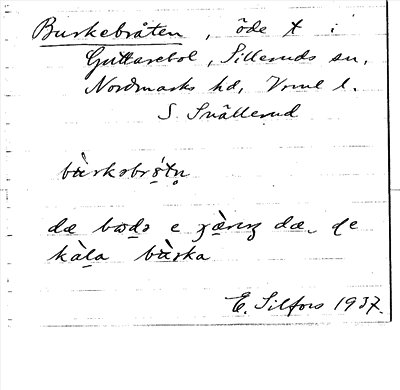 Burkebråten, öde t i
Guttarebol, Silleruds sn,
Nordmarks hd, Vrml l.
S. Snällerud
bùrskəbrǫ́tn̥
dæ bodə e gæ̀reŋ dæ, de
kàl̠a bùrska
E. Silfors 1937.